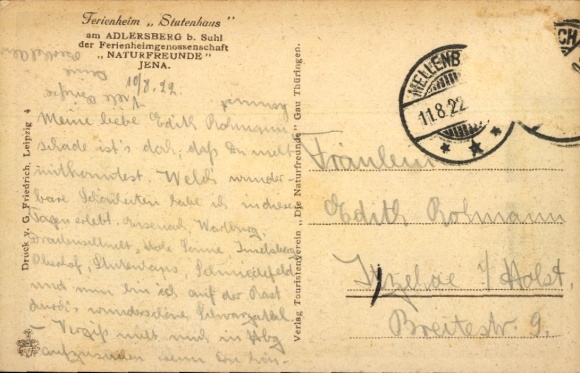 Ferienheim „Stutenhaus"
am ADLERSBERG b. Suhl
der Ferienheimgenossenschaft
„NATURFREUNDE"
JENA.
10/8.22.
Meine liebe Edith Rohmann
schade ist's doch, daß Du nicht
mitkonntest. Welch wunder-
bare Schönheiten habe ich in diesen
Tagen erlebt. Eisenach, Wartburg,
Inselsberg,
Oberhof, Stutenhaus, Schmiedefeld
und nun bin ich auf der Rast
durch's wunderschöne Schwarzatal.
– Vergiß nicht mich in Hbg
aufzusuchen wenn Du
Druck v. G. Friedrich, Leipzig 4
Verlag Touristenverein „Die Naturfreunde" Gau Thüringen.
MELLENB
11.8.22
CH
Fräulein
Edith Rohmann
Itzehoe i/Holst.
Breitestr. 9.